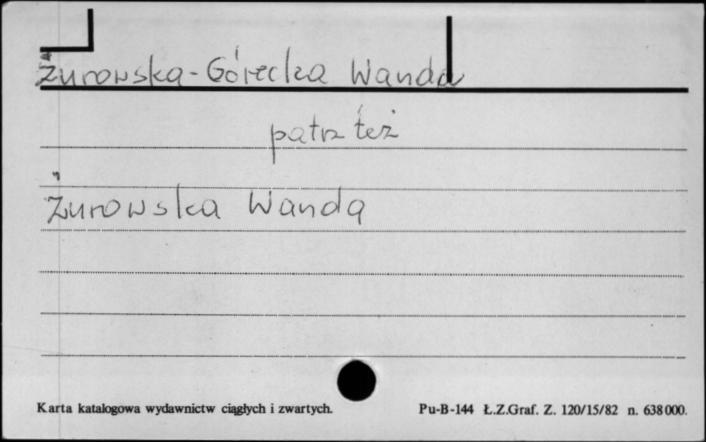 Żurowska-Górecka Wanda
patrz też
Żurowska Wanda
Karta katalogowa wydawnictw ciągłych i zwartych.
Pu-B-144 Ł.Z.Graf. Z. 120/15/82 n. 638000.